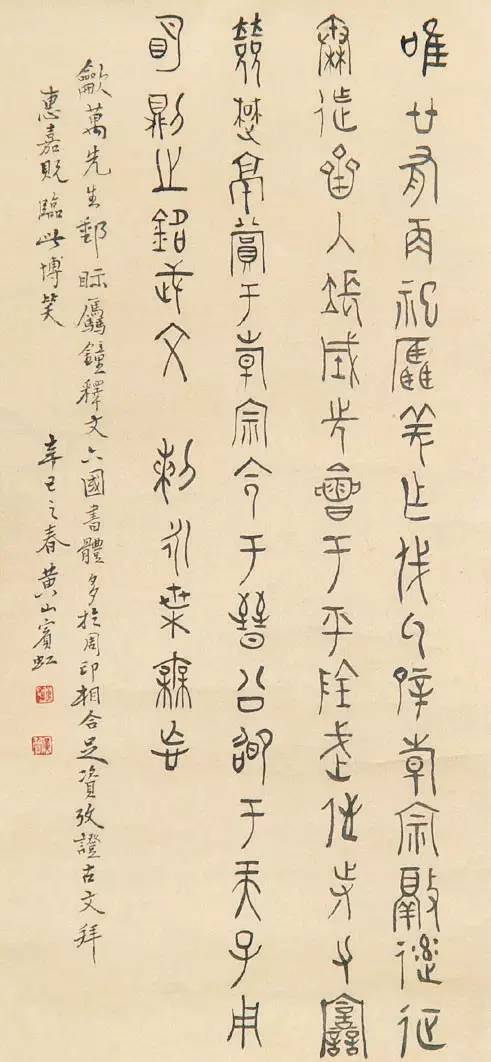 唯廿又再祀驫羌乍戎氒辟倝宗敲征
秦迮齊入張城先會于平陰武侄寺力
敓楚京賞于倝宗令于晉公卲于天子用
明則之銘武文 剌永枼毋忘
萬先生郵眎驫鐘釋文六國書體多於周印相合足資攷證古文拜
惠嘉貺臨此博笑 辛巳之春黄山賓虹